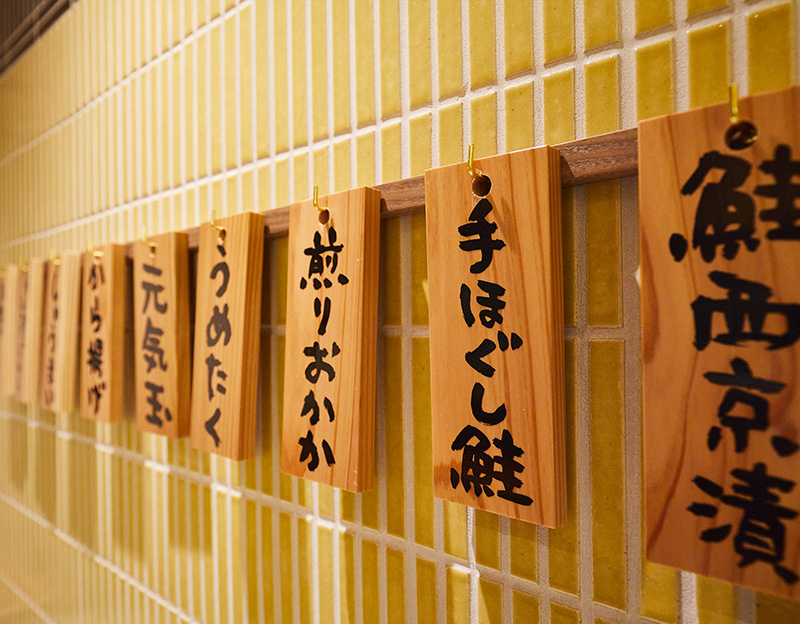 鮭西京漬
手ほぐし鮭
煎りおかか
うめたく
元気玉
から揚げ